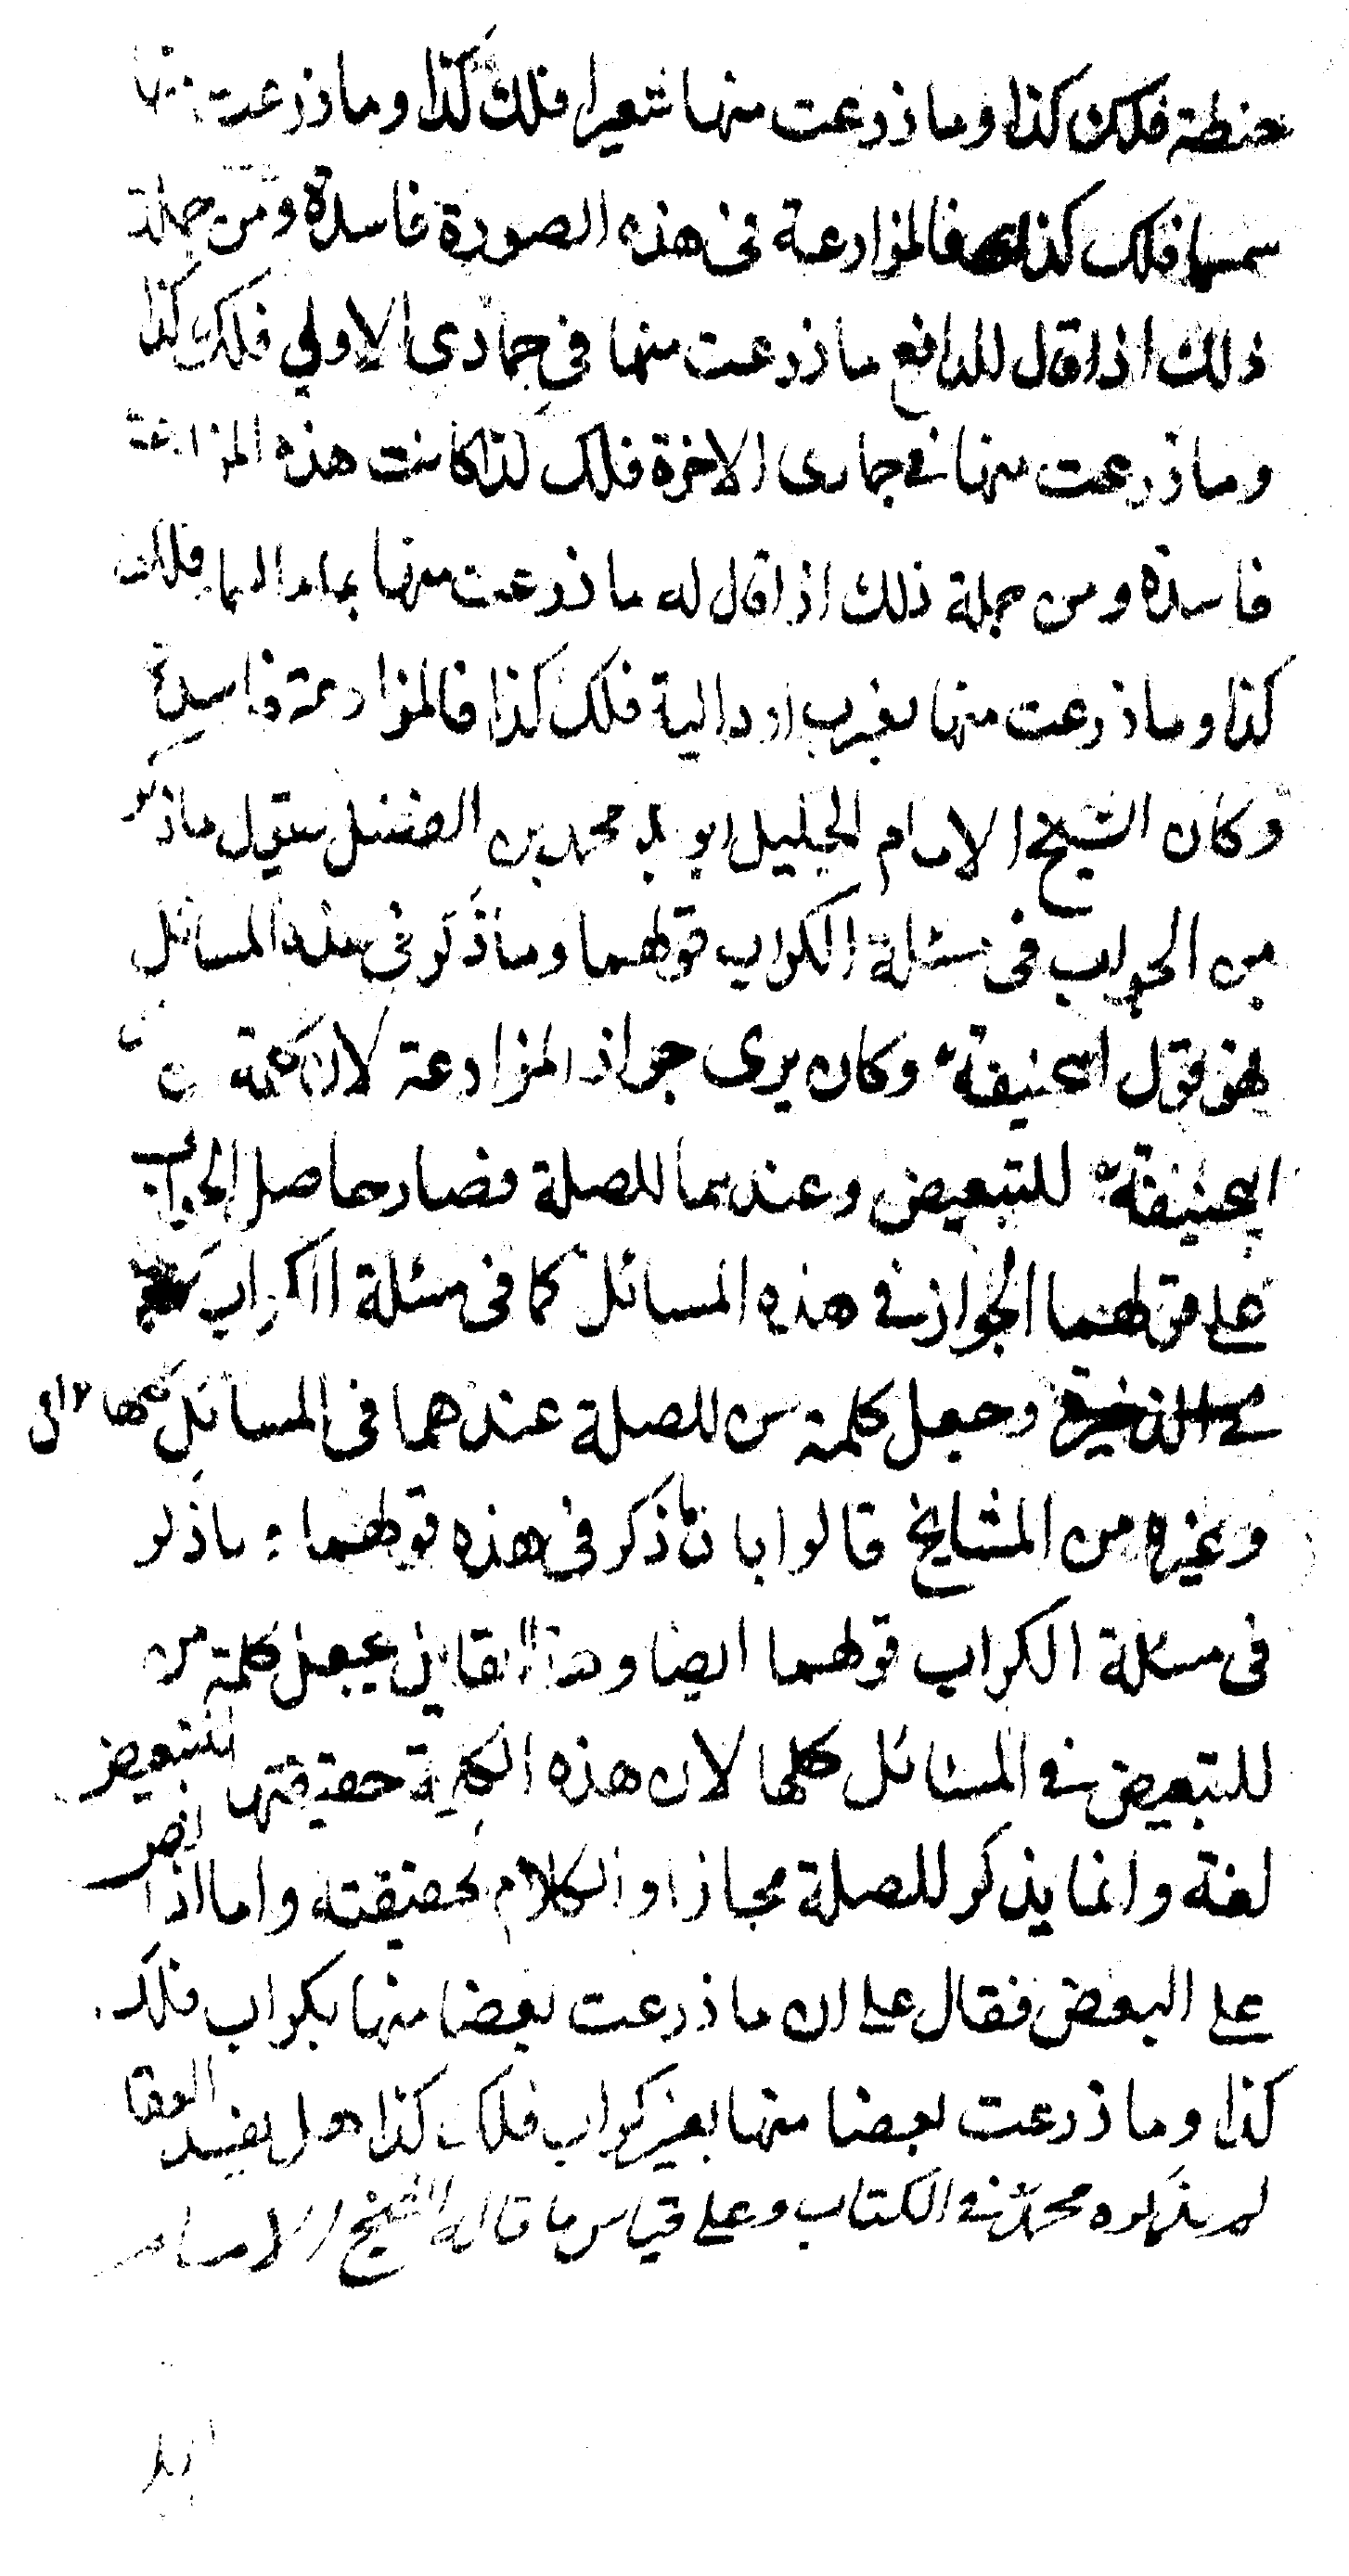 حنطة فلك كذا وما زرعت منها شعيرا فلك كذا وما زرعت منها
سمسما فلك كذا فالمزارعة في هذه الصورة فاسدة ومن جملة
ذلك اذا قال للدافع ما زرعت منها في جمادى الاولى فلك كذا
وما زرعت منها في جمادى الاخرة فلك كذا كانت هذه المزارعة
فاسدة ومن جملة ذلك اذا قال له ما زرعت منها بماء السماء فلك
كذا وما زرعت منها بغرب او دالية فلك كذا فالمزارعة فاسدة
وكان الشيخ الامام الجليل ابو بكر محمد بن الفضل يقول ما ذكر
من الجواب في مسئلة الكراب قولهما وما ذكر في هذه المسائل
فهو قول ابيحنيفة وكان يرى جواز المزارعة لان كلمة من
ابيحنيفة للتبعيض وعندهما للصلة فصار حاصل الجواب
على قولهما الجواز في هذه المسائل كما في مسئلة الكراب
وجعل كلمة من للصلة عندهما في المسائل كلها
وغيره من المشايخ قالوا بان ما ذكر في هذه قولهما وما ذكر
في مسئلة الكراب قولهما ايضا وهذا القائل يجعل كلمة من
للتبعيض في المسائل كلها لان هذه الكلمة حقيقتها للتبعيض
لغة وانما يذكر للصلة مجازا والكلام لحقيقته واما اذا نص
على البعض فقال على ان ما زرعت بعضا منها بكراب فلك
كذا وما زرعت بعضا منها بغير كراب فلك كذا هل يفسد العقد
لم يذكره محمد في الكتاب وعلى قياس ما قاله الشيخ الامام